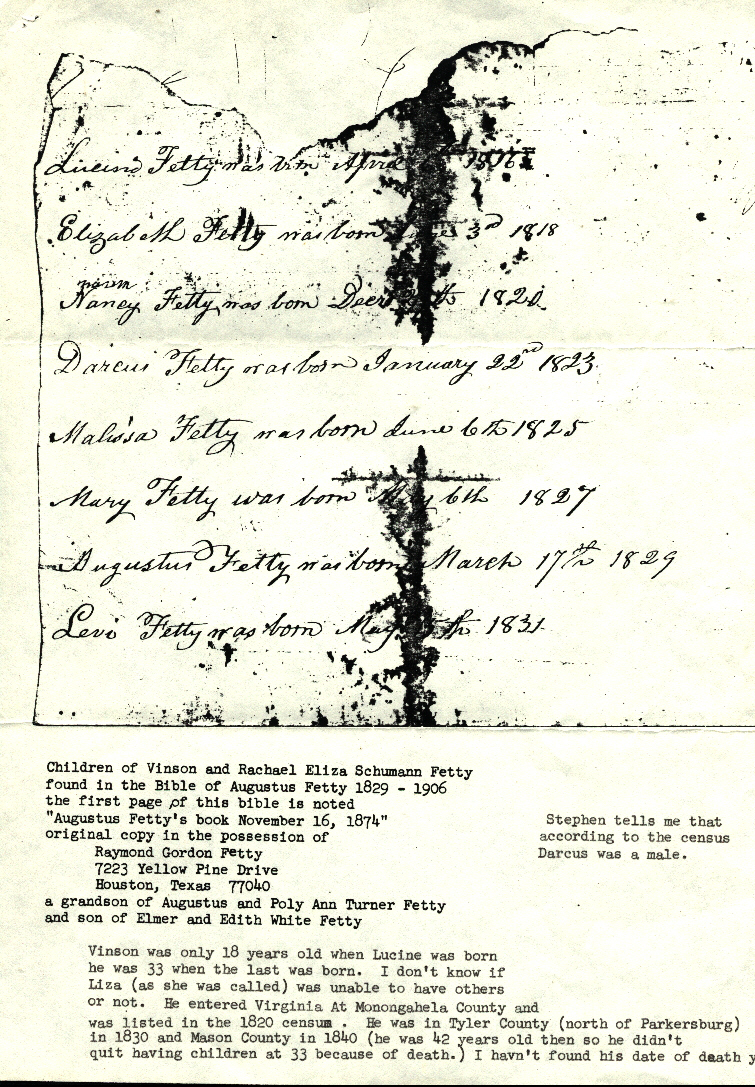 Lucind Fetty was born April 1816
Elizabeth Fetty was born 3rd 1818
Nancy Fetty was born Decr th 1820
Darcus Fetty was born January 22nd 1823
Malissa Fetty was born June 6th 1825
Mary Fetty was born May 6th 1827
Augustus Fetty was born March 17th 1829
Levi Fetty was born May th 1831
Children of Vinson and Rachael Eliza Schumann Fetty
found in the Bible of Augustus Fetty 1829 - 1906
the first page of this bible is noted
"Augustus Fetty's book November 16, 1874"
original copy in the possession of
Raymond Gordon Fetty
7223 Yellow Pine Drive
Houston, Texas 77040
a grandson of Augustus and Poly Ann Turner Fetty
and son of Elmer and Edith White Fetty
Stephen tells me that
according to the census
Darcus was a male.
Vinson was only 18 years old when Lucine was born
he was 33 when the last was born. I don't know if
Liza (as she was called) was unable to have others
or not. He entered Virginia At Monongahela County and
was listed in the 1820 censum . He was in Tyler County (north of Parkersburg)
in 1830 and Mason County in 1840 (he was 42 years old then so he didn't
quit having children at 33 because of death.) I havn't found his date of death y